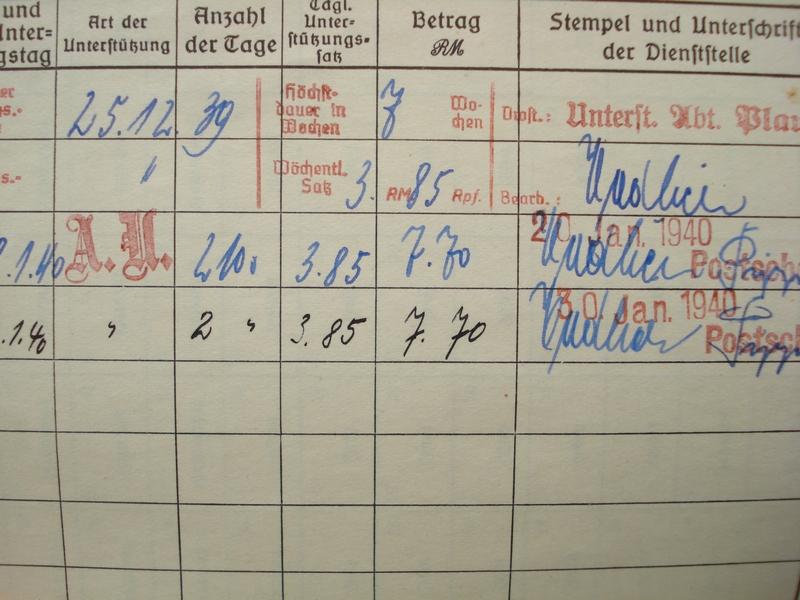 und
Unter=
gstag
Art der
Unterstützung
Anzahl
der Tage
Tägl.
Unter=
stützungs=
satz
Betrag
RM
Stempel und Unterschrift
der Dienststelle
25.12. 39
Höchst-
dauer in
Wochen
7
Wo-
chen
Dnst.: Unterst. Abt. Plau
"
Wöchentl.
Satz
3. RM 85 Rpf.
Bearb.:
.1.40
A.U.
3.85
7.70
20. Jan. 1940
Postsch
.1.40
"
2 "
3.85
7.70
30. Jan. 1940
Postsch